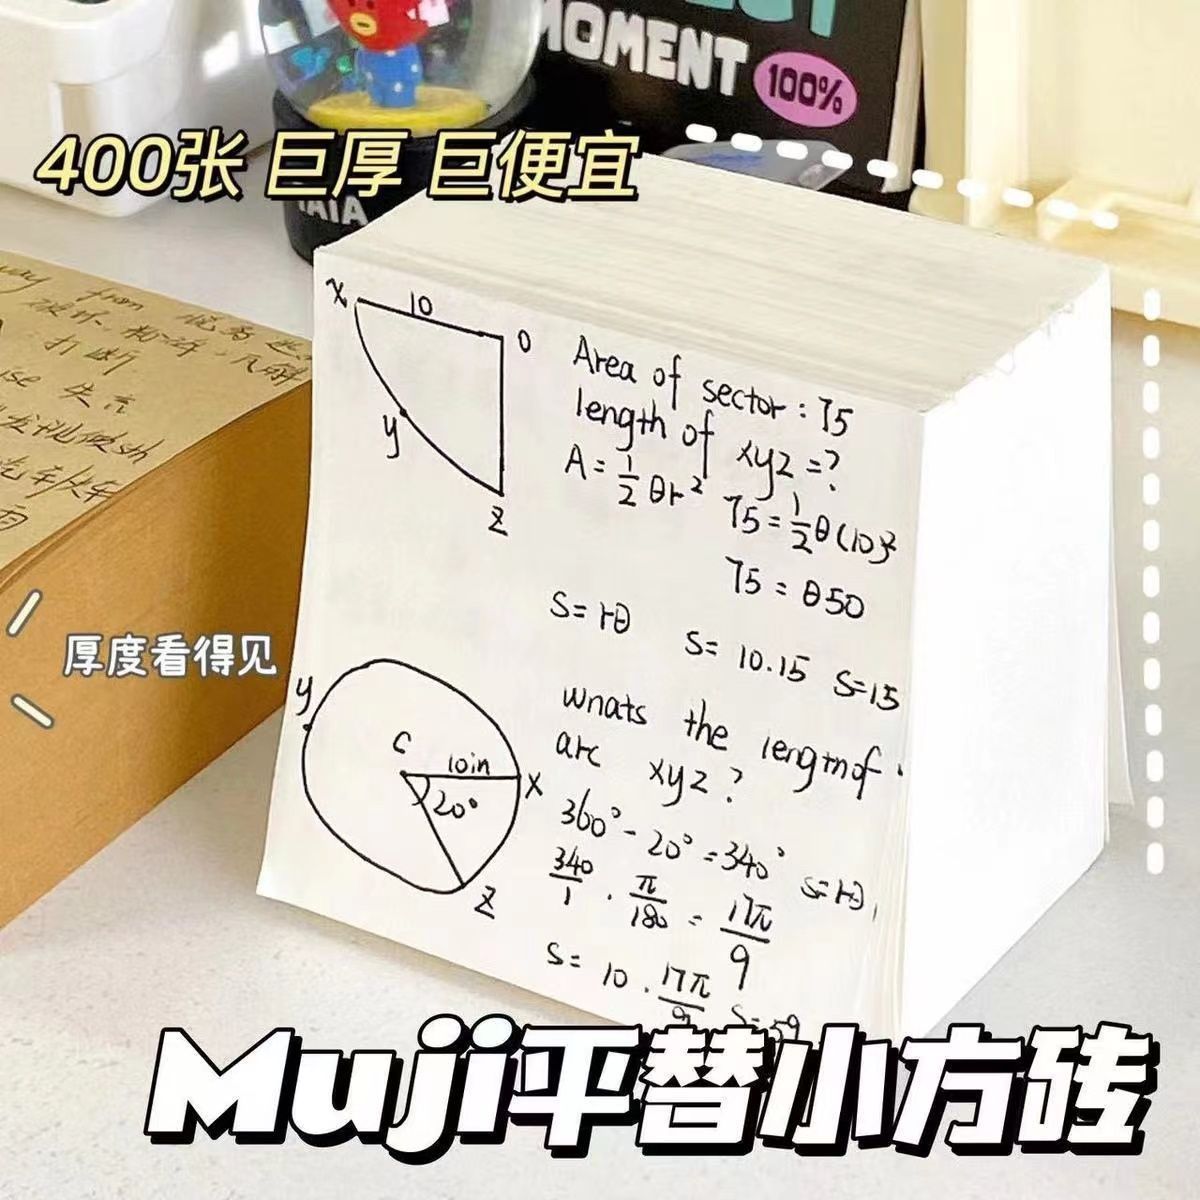 MOMENT
100%
400张 巨厚 巨便宜
TATA
way from
打断
失言
汽车/火车
厚度看得见
x 10 O
y
z
Area of sector : 75
length of xyz = ?
A = 1/2 θr²
75 = 1/2 θ(10)²
75 = θ50
S = rθ S = 10.15 S=15
y
C 10in X
20°
z
wnats the lengmof
arc xyz ?
360° - 20° = 340° S=rθ
340/1 · π/180 = 17π/9
S = 10 · 17π/9 S=59
Muji平替小方砖